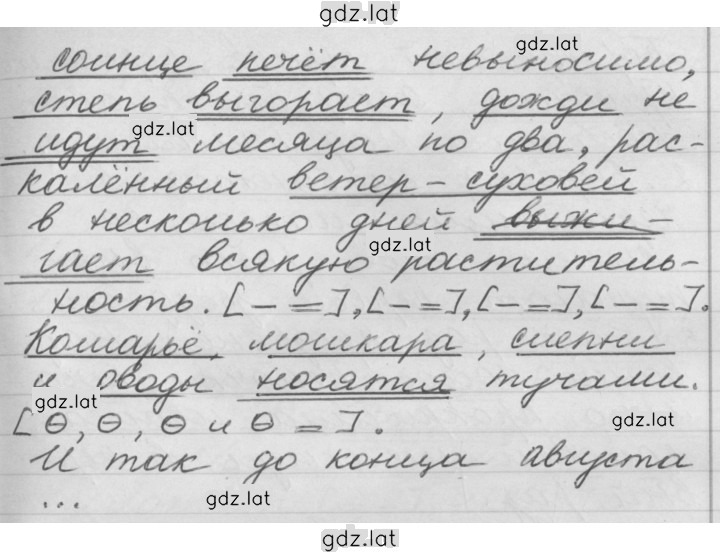 gdz.lat
gdz.lat
солнце печёт невыносимо,
степь выгорает, дожди не
gdz.lat
идут месяца по два, рас-
калённый ветер-суховей
в несколько дней выжи-
gdz.lat
гает всякую раститель-
ность. [– =], [– =], [– =], [– =].
Комарьё, мошкара, слепни
и оводы носятся тучами.
gdz.lat
gdz.lat
[⊖, ⊖, ⊖ и ⊖ =].
И так до конца августа
...
gdz.lat
gdz.lat